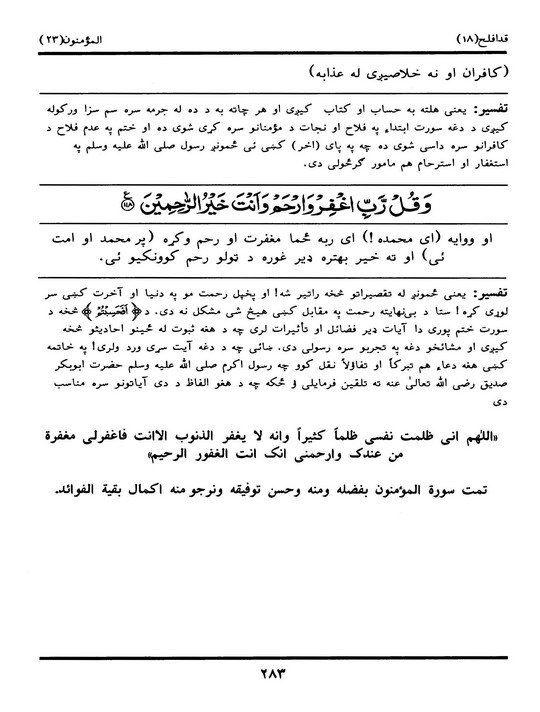 قدافلح(۱۸) المؤمنون(۲۳)
(کافران او نه خلاصیږی له عذابه)
تفسیر: یعنی هلته به حساب او کتاب کیږی او هر چاته به د ده له جرمه سره سم سزا ورکوله
کیږی د دغه سورت ابتداء په فلاح او نجات د مؤمنانو سره کړی شوی ده او ختم په عدم فلاح د
کافرانو سره داسی شوی ده چه په پای (اخر) کښی ئی ځمونږ رسول صلی الله علیه وسلم په
استغفار او استرحام هم مامور گرځولی دی.
وَقُلْ رَّبِّ اغْفِرْ وَارْحَمْ وَاَنْتَ خَیْرُ الرّٰحِمِیْنَ ﴿۱۱۸﴾
او ووایه (ای محمده!) ای ربه ځما مغفرت او رحم وکړه (پر محمد او امت
ئی) او ته خیر بهتره ډیر غوره د ټولو رحم کوونکیو ئی.
تفسیر: یعنی ځمونږ له تقصیراتو څخه راتیر شه! او پخپل رحمت مو په دنیا او آخرت کښی سر
لوړی کړه! ستا د بی‌نهایته رحمت په مقابل کښی هیڅ شی مشکل نه دی. د ﴿اَفَحَسِبْتُمْ﴾ څخه د
سورت ختم پوری دا آیات ډیر فضائل او تأثیرات لری چه د هغه ثبوت له ځینو احادیثو څخه
کیږی او مشائخو دغه په تجربو سره رسولی دی. ښائی چه د دغه آیت سړی ورد ولری! په خاتمه
کښی هغه دعاء هم تبرکاً او تفاؤلاً نقل کوو چه رسول اکرم صلی الله علیه وسلم حضرت ابوبکر
صدیق رضی الله تعالیٰ عنه ته تلقین فرمایلی ؤ ځکه چه د هغو الفاظ د دی آیاتونو سره مناسب
دی
«اللهم انی ظلمت نفسی ظلماً کثیراً وانه لا یغفر الذنوب الاانت فاغفرلی مغفرة
من عندک وارحمنی انک انت الغفور الرحیم»
تمت سورة المؤمنون بفضله ومنه وحسن توفیقه ونرجو منه اکمال بقیة الفوائد.
۲۸۳